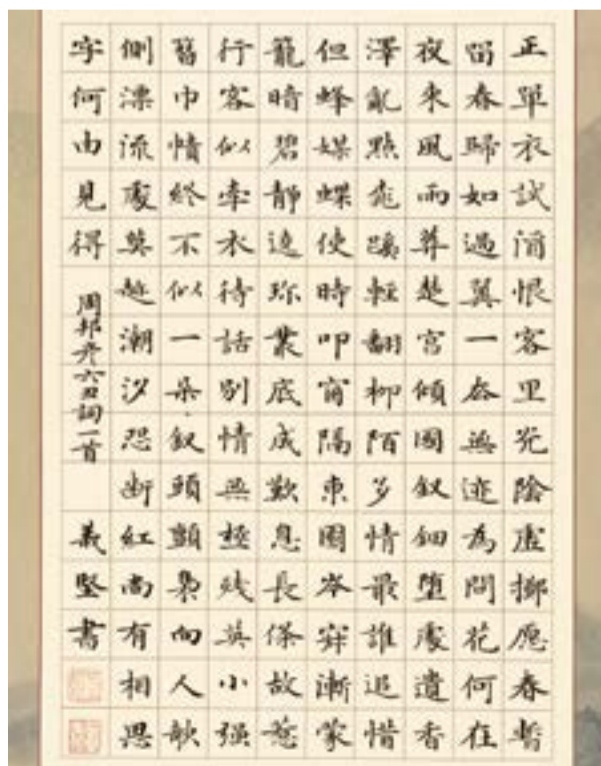 正單衣試酒恨客里光陰虛擲愿春暫
留春歸如過翼一去無迹為問花何在
夜來風雨葬楚宮傾國釵鈿墮處遺香
澤亂點桃蹊輕翻柳陌多情最誰追惜
但蜂媒蝶使時叩窗隔東園岑寂漸蒙
籠暗碧靜遶珍叢底成歎息長條故惹
行客似牽衣待話別情無極殘英小強
簪巾幘終不似一朵釵頭顫裊向人欹
側漂流處莫趁潮汐恐斷紅尚有相思
字何由見得
周邦彥六丑詞一首
義堅書